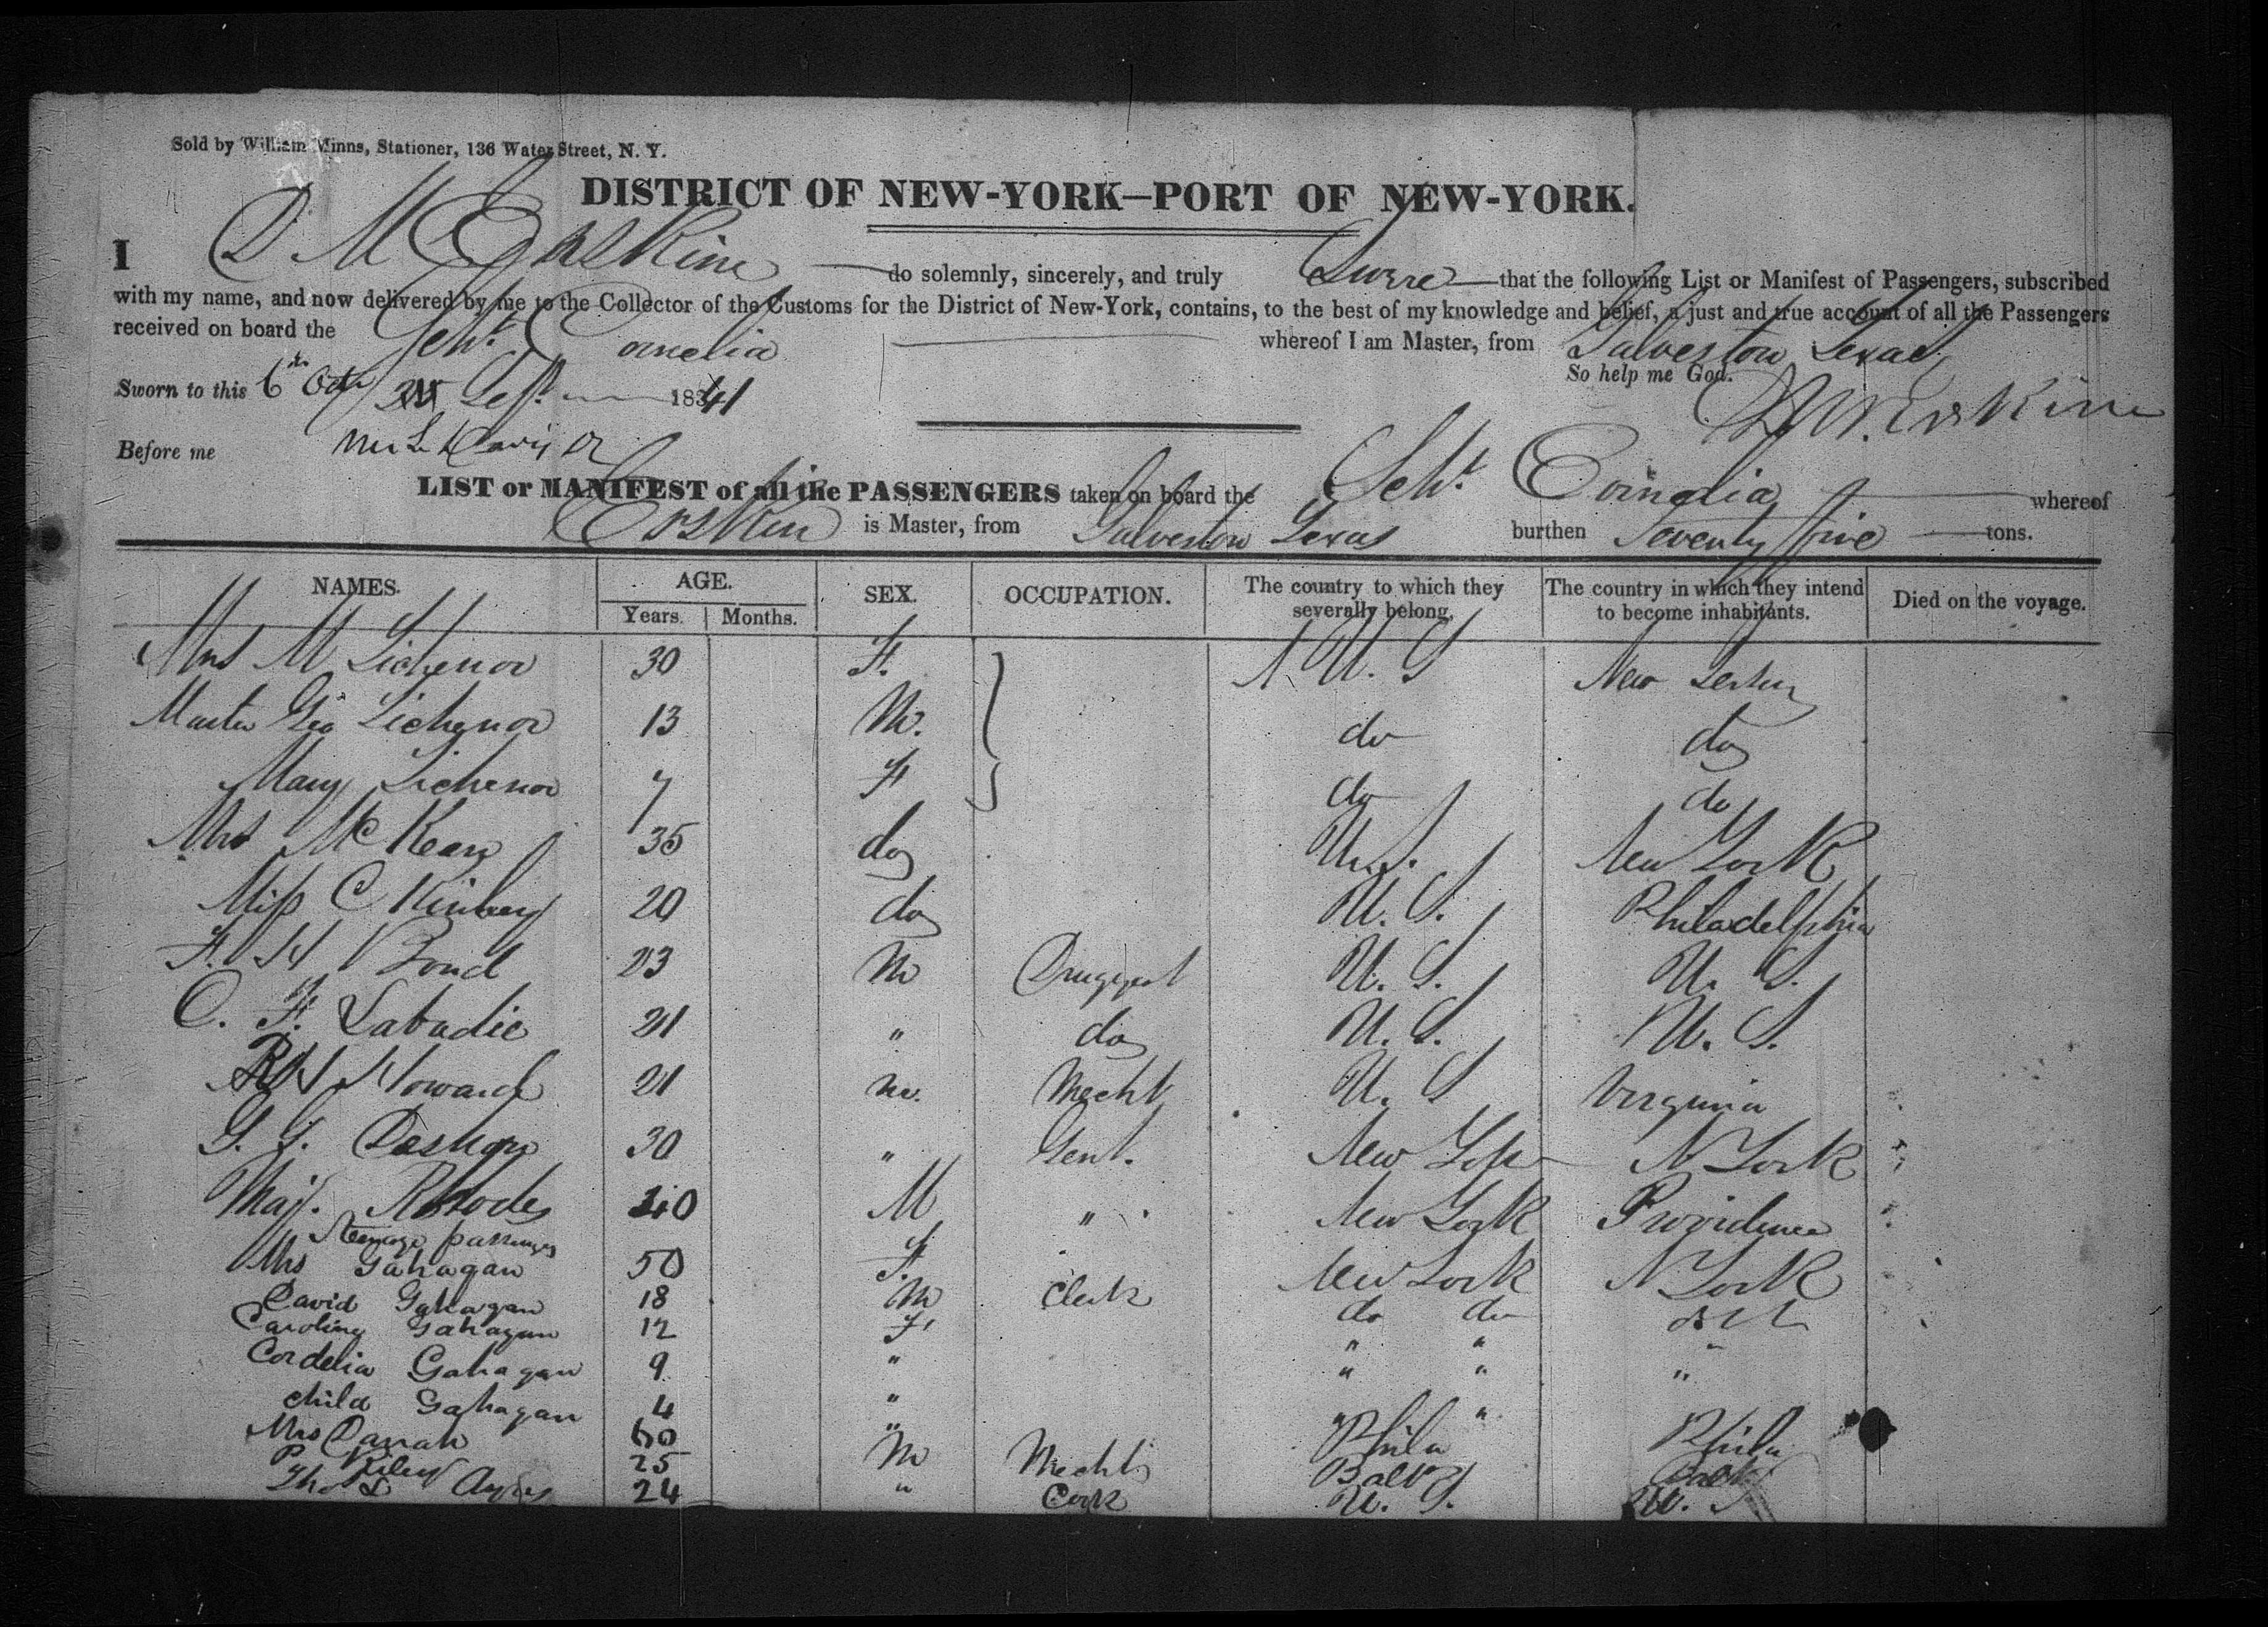 Sold by William Minns, Stationer, 136 Water Street, N. Y.
DISTRICT OF NEW-YORK—PORT OF NEW-YORK.
I D M Erskine do solemnly, sincerely, and truly Swere that the following List or Manifest of Passengers, subscribed
with my name, and now delivered by me to the Collector of the Customs for the District of New-York, contains, to the best of my knowledge and belief, a just and true account of all the Passengers
received on board the Schr. Cornelia whereof I am Master, from Galveston Texas
So help me God.
Sworn to this 6th Octr Sept. 1841
D M Erskine
Before me
LIST or MANIFEST of all the PASSENGERS taken on board the Schr. Cornelia whereof
Erskine is Master, from Galveston Texas burthen Seventy five tons.
NAMES. AGE. SEX. OCCUPATION. The country to which they severally belong. The country in which they intend to become inhabitants. Died on the voyage.
Years. Months.
Mrs M Lichenor 30 F. U. S New Jersey
Master Geo Lichenor 13 M. do do
Mary Lichenor 7 F do do
Mrs McKean 35 do U.S. New York
Miss C 20 do U. S. Philadelphia
F. H Bond 23 M Druggest U. S. U. S.
C. F. Labadie 21 " do U. S. U. S.
Howard 21 m. Mecht U. S Virginia
30 " Gent. New York N York
Maj. Rhodes 40 M " New York Providence
Steerage passenges
Mrs Gahagan 50 F. New York N York
David Gahagan 18 M Clerk do do
Caroline Gahagan 12 F. " "
Cordelia Gahagan 9 " " " "
child Gahagan 4 " " "
Mrs Darrah 60 " Phila Phila
P Riley 25 M Mecht Balt
Thos L 24 " Cook U. S. U. S